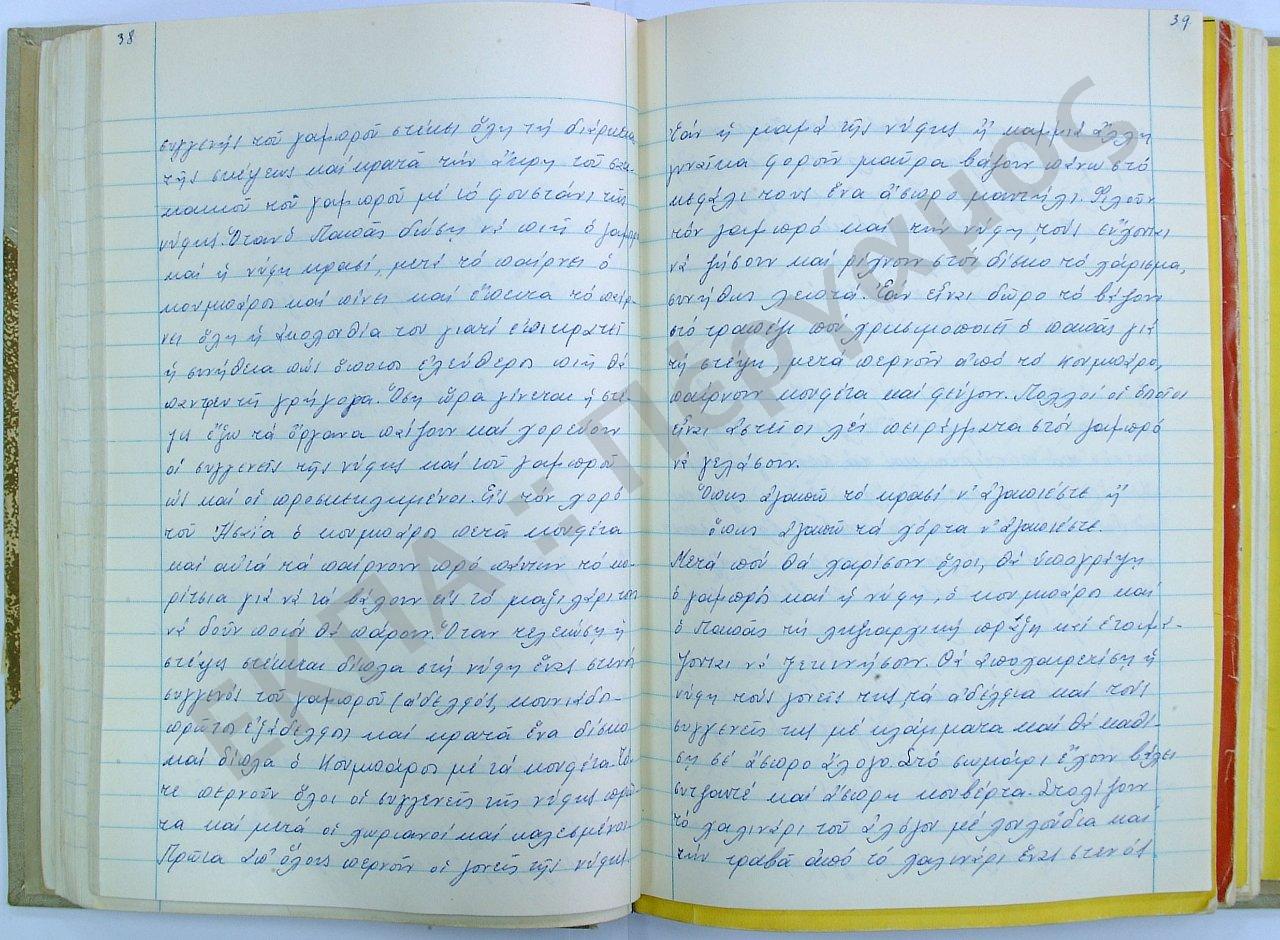 38
συγγενής τοῦ γαμπροῦ στέκει ὅλη τή διάρκεια
τῆς στέψεως καί κρατᾶ τήν ἄκρη τοῦ σακ-
κακιοῦ τοῦ γαμπροῦ μέ τό φουστάνι τῆς
νύφης. Ὅταν ὁ Παπᾶς δώση νά πιῆ ὁ γαμπρός
καί ἡ νύφη κρασί, μετά τό παίρνει ὁ
κουμπάρος καί πίνει καί ἔπειτα τό παίρ-
νει ὅλη ἡ ἀκολουθία του γιατί ἐπικρατεῖ
ἡ συνήθεια πώς ὅποιος ἐλεύθερος πιῆ θά
παντρευτῆ γρήγορα. Ὅση ὥρα γίνεται ἡ στέ-
ψι ἔξω τά ὄργανα παίζουν καί χορεύουν
οἱ συγγενεῖς τῆς νύφης καί τοῦ γαμπροῦ
ὡς καί οἱ προσκεκλημένοι. Εἰς τόν χορό
τοῦ Ἡσαΐα ὁ κουμπάρος πετᾶ κουφέτα
καί αὐτά τά παίρνουν πρό πάντων τά κο-
ρίτσια γιά νά τά βάλουν εἰς τό μαξιλάρι τους
νά δοῦν ποιόν θά πάρουν. Ὅταν τελειώση ἡ
στέψις στέκεται δίπλα στή νύφη ἕνας στενός
συγγενής τοῦ γαμπροῦ (ἀδελφός, κουνιάδος
πρῶτος ἐξάδελφος καί κρατᾶ ἕνα δίσκο
καί δίπλα ὁ Κουμπάρος μέ τά κουφέτα. Τό-
τε περνοῦν ὅλοι οἱ συγγενεῖς τῆς νύφης πρῶ-
τα καί μετά οἱ χωριανοί καί καλεσμένοι.
Πρῶτα ἀπ' ὅλους περνοῦν οἱ γονεῖς τῆς νύφης
39
Ἐάν ἡ μαμά τῆς νύφης ἤ καμμιά ἄλλη
γυναῖκα φοροῦν μαῦρα βάζουν πάνω στό
κεφάλι τους ἕνα ἄσπρο μαντήλι. Φιλοῦν
τόν γαμπρό καί τήν νύφη, τούς εὔχονται
νά ζήσουν καί ρίχνουν στό δίσκο τό χάρισμα,
συνήθως λεπτά. Ἐάν εἶναι δῶρο τό βάζουν
στό τραπέζι πού χρησιμοποιεῖ ὁ παπᾶς γιά
τή στέψη, μετά περνοῦν ἀπό τό κουμπάρο,
παίρνουν κουφέτα καί φεύγουν. Πολλοί οἱ ὁποῖοι
εἶναι ἀστεῖοι λέν πειράγματα στόν γαμπρό
νά γελάσουν.
Ὅπως ἀγαπῶ τό κρασί ν' ἀγαπιέστε ἤ
ὅπως ἀγαπῶ τά χόρτα ν' ἀγαπιέστε.
Μετά πού θά χαρίσουν ὅλοι, θά ὑπογράψη
ὁ γαμπρός καί ἡ νύφη, ὁ κουμπάρος καί
ὁ Παπᾶς τή ληξιαρχική πράξη καί ἑτοιμά-
ζονται νά ξεκινήσουν. Θά ἀποχαιρετίση ἡ
νύφη τούς γονεῖς της, τά ἀδέλφια καί τούς
συγγενεῖς της μέ κλάμματα καί θά καθί-
ση σέ ἄσπρο ἄλογο. Στό σωμάρι ἔχουν βάλει
συτζαντέ καί ἄσπρη κουβέρτα. Στολίζουν
τό χαλινάρι τοῦ ἀλόγου μέ λουλούδια καί
τήν τραβᾶ ἀπό τό χαλινάρι ἕνας στενός